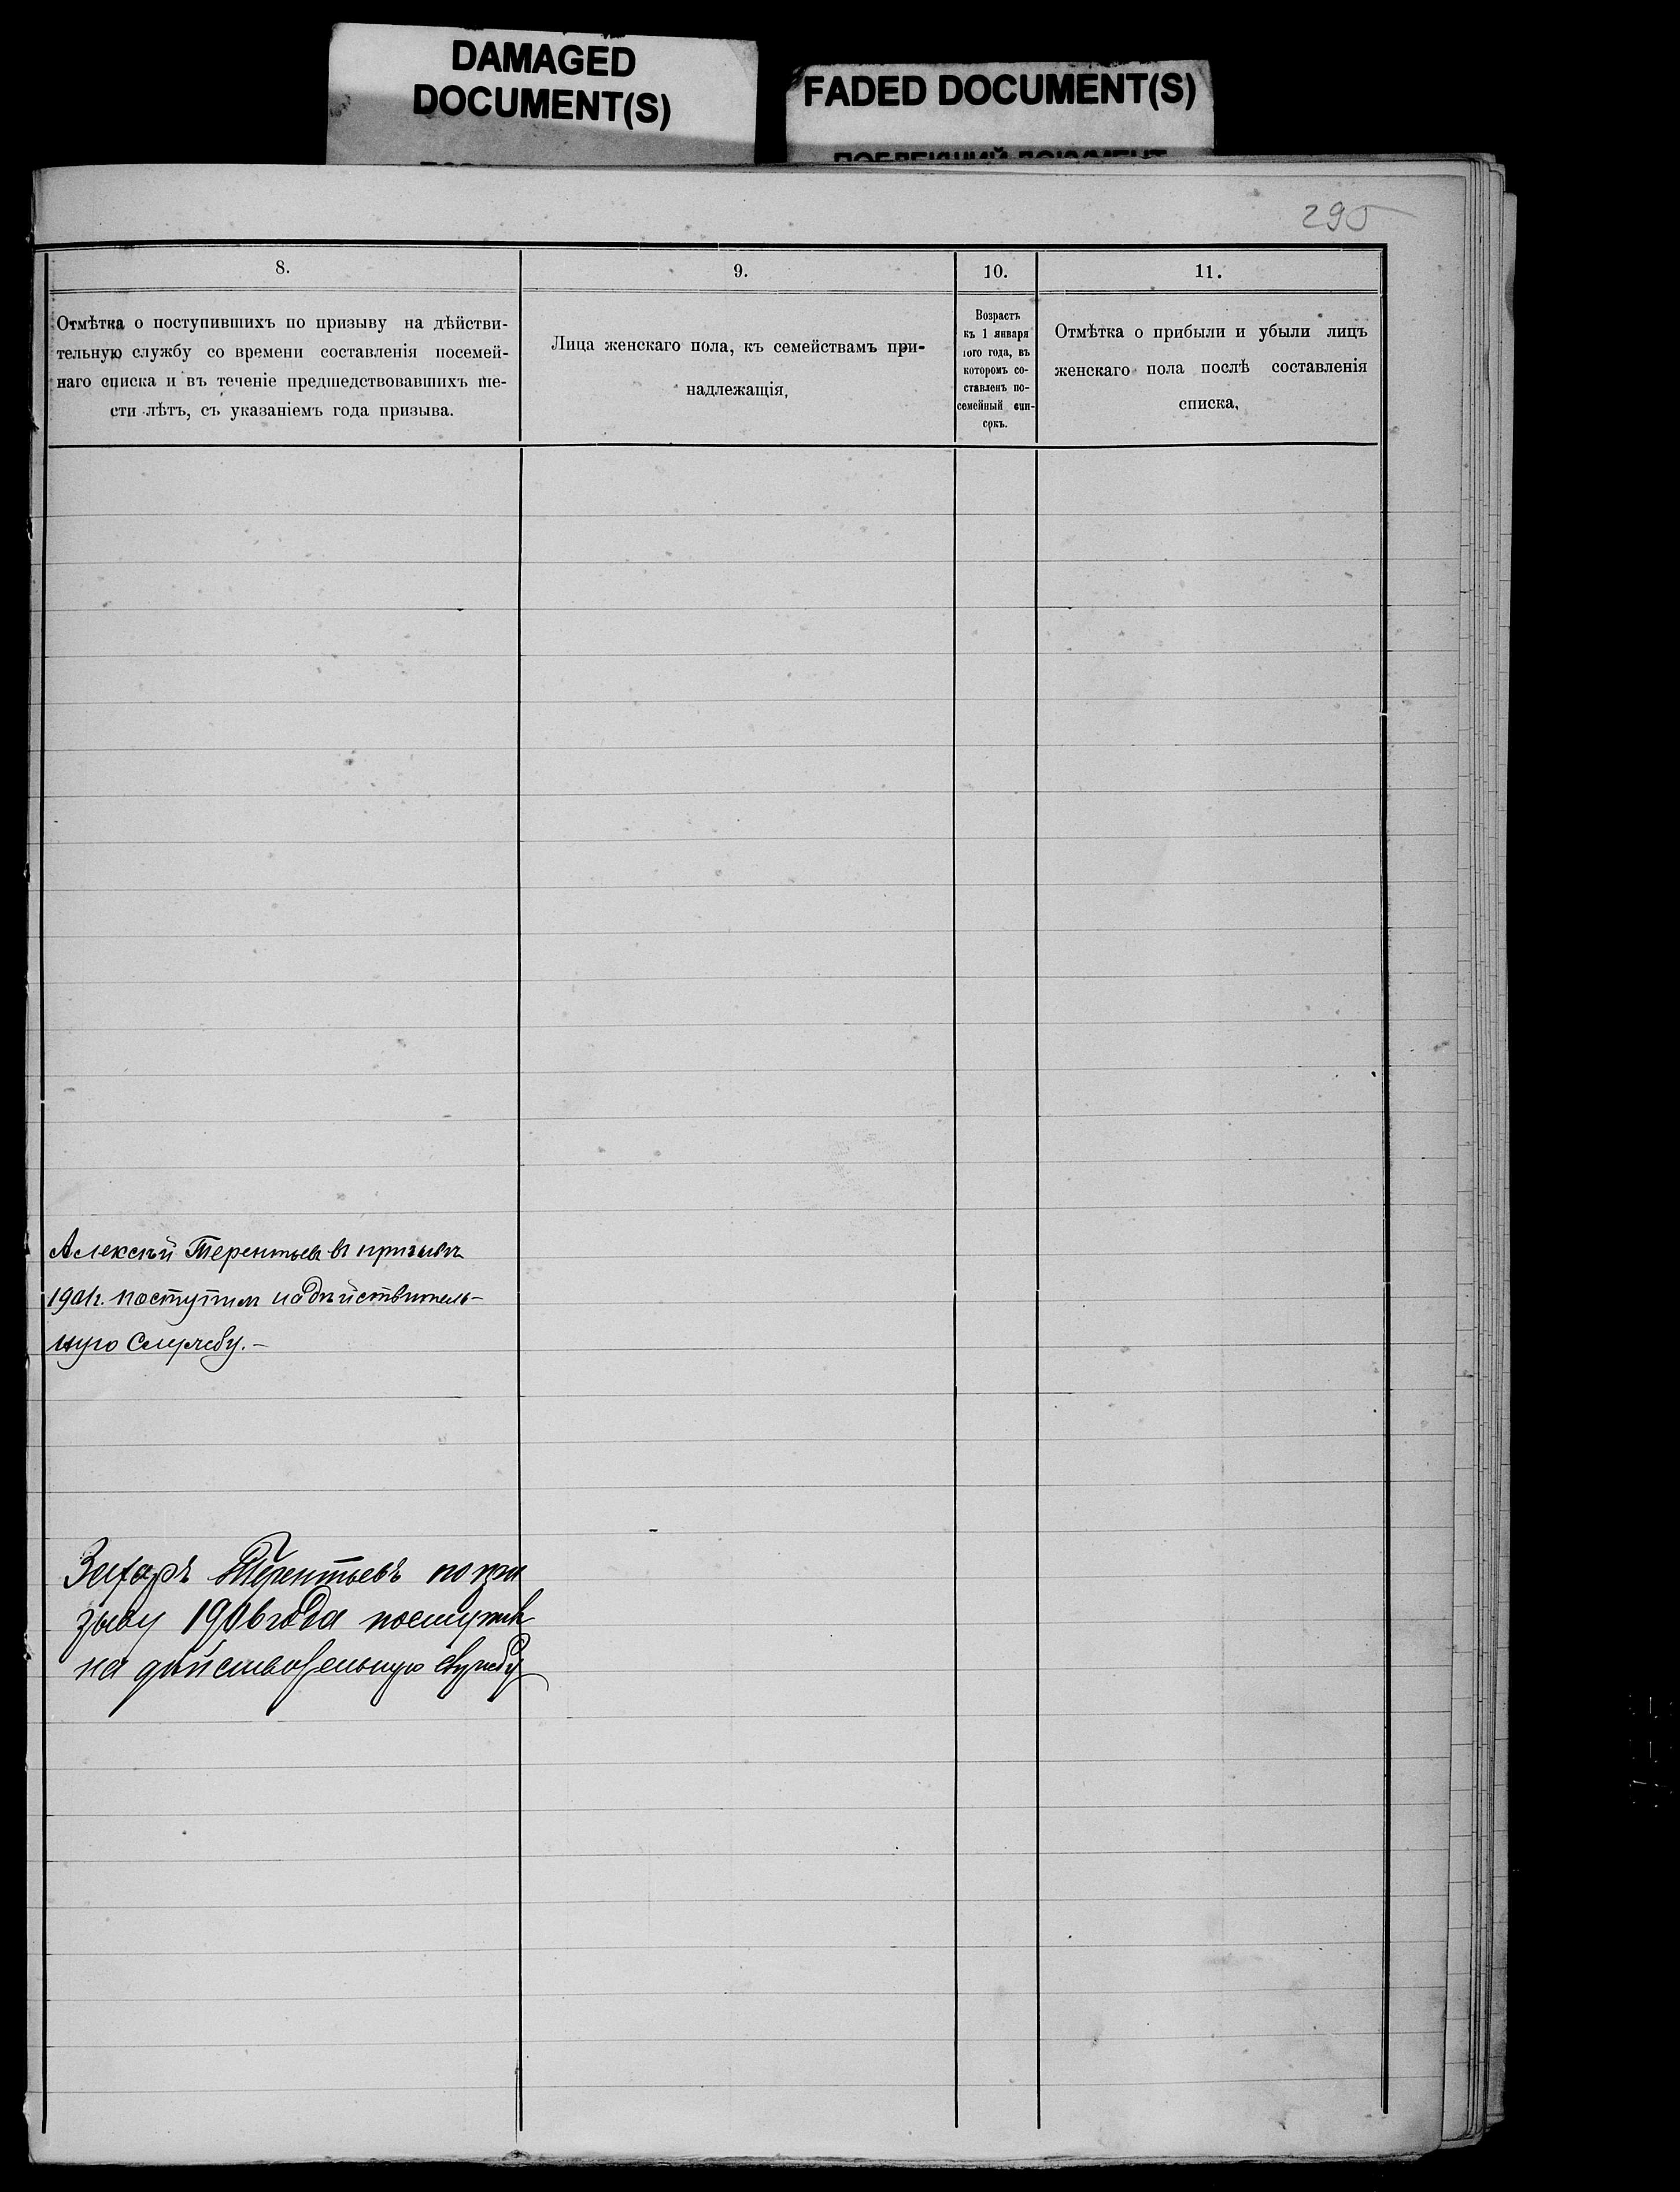 DAMAGED
DOCUMENT(S)
FADED DOCUMENT(S)
ПОБЛЕКШИЙ ДОКУМЕНТ
290
8.
9.
10.
11.
Отмѣтка о поступившихъ по призыву на дѣйстви-
тельную службу со времени составленія посемей-
наго списка и въ теченіе предшедствовавшихъ ше-
сти лѣтъ, съ указаніемъ года призыва.
Лица женскаго пола, къ семействамъ при-
надлежащія,
Возрастъ
къ 1 января
того года, въ
которомъ со-
ставленъ по-
семейный спи-
сокъ.
Отмѣтка о прибыли и убыли лицъ
женскаго пола послѣ составленія
списка,
Алексѣй Терентьевъ въ призывъ
1901г. поступилъ на дѣйствитель-
ную Службу.-
Захаръ Терентьевъ по при
зыву 1906 года поступилъ
на дѣйствительную службу